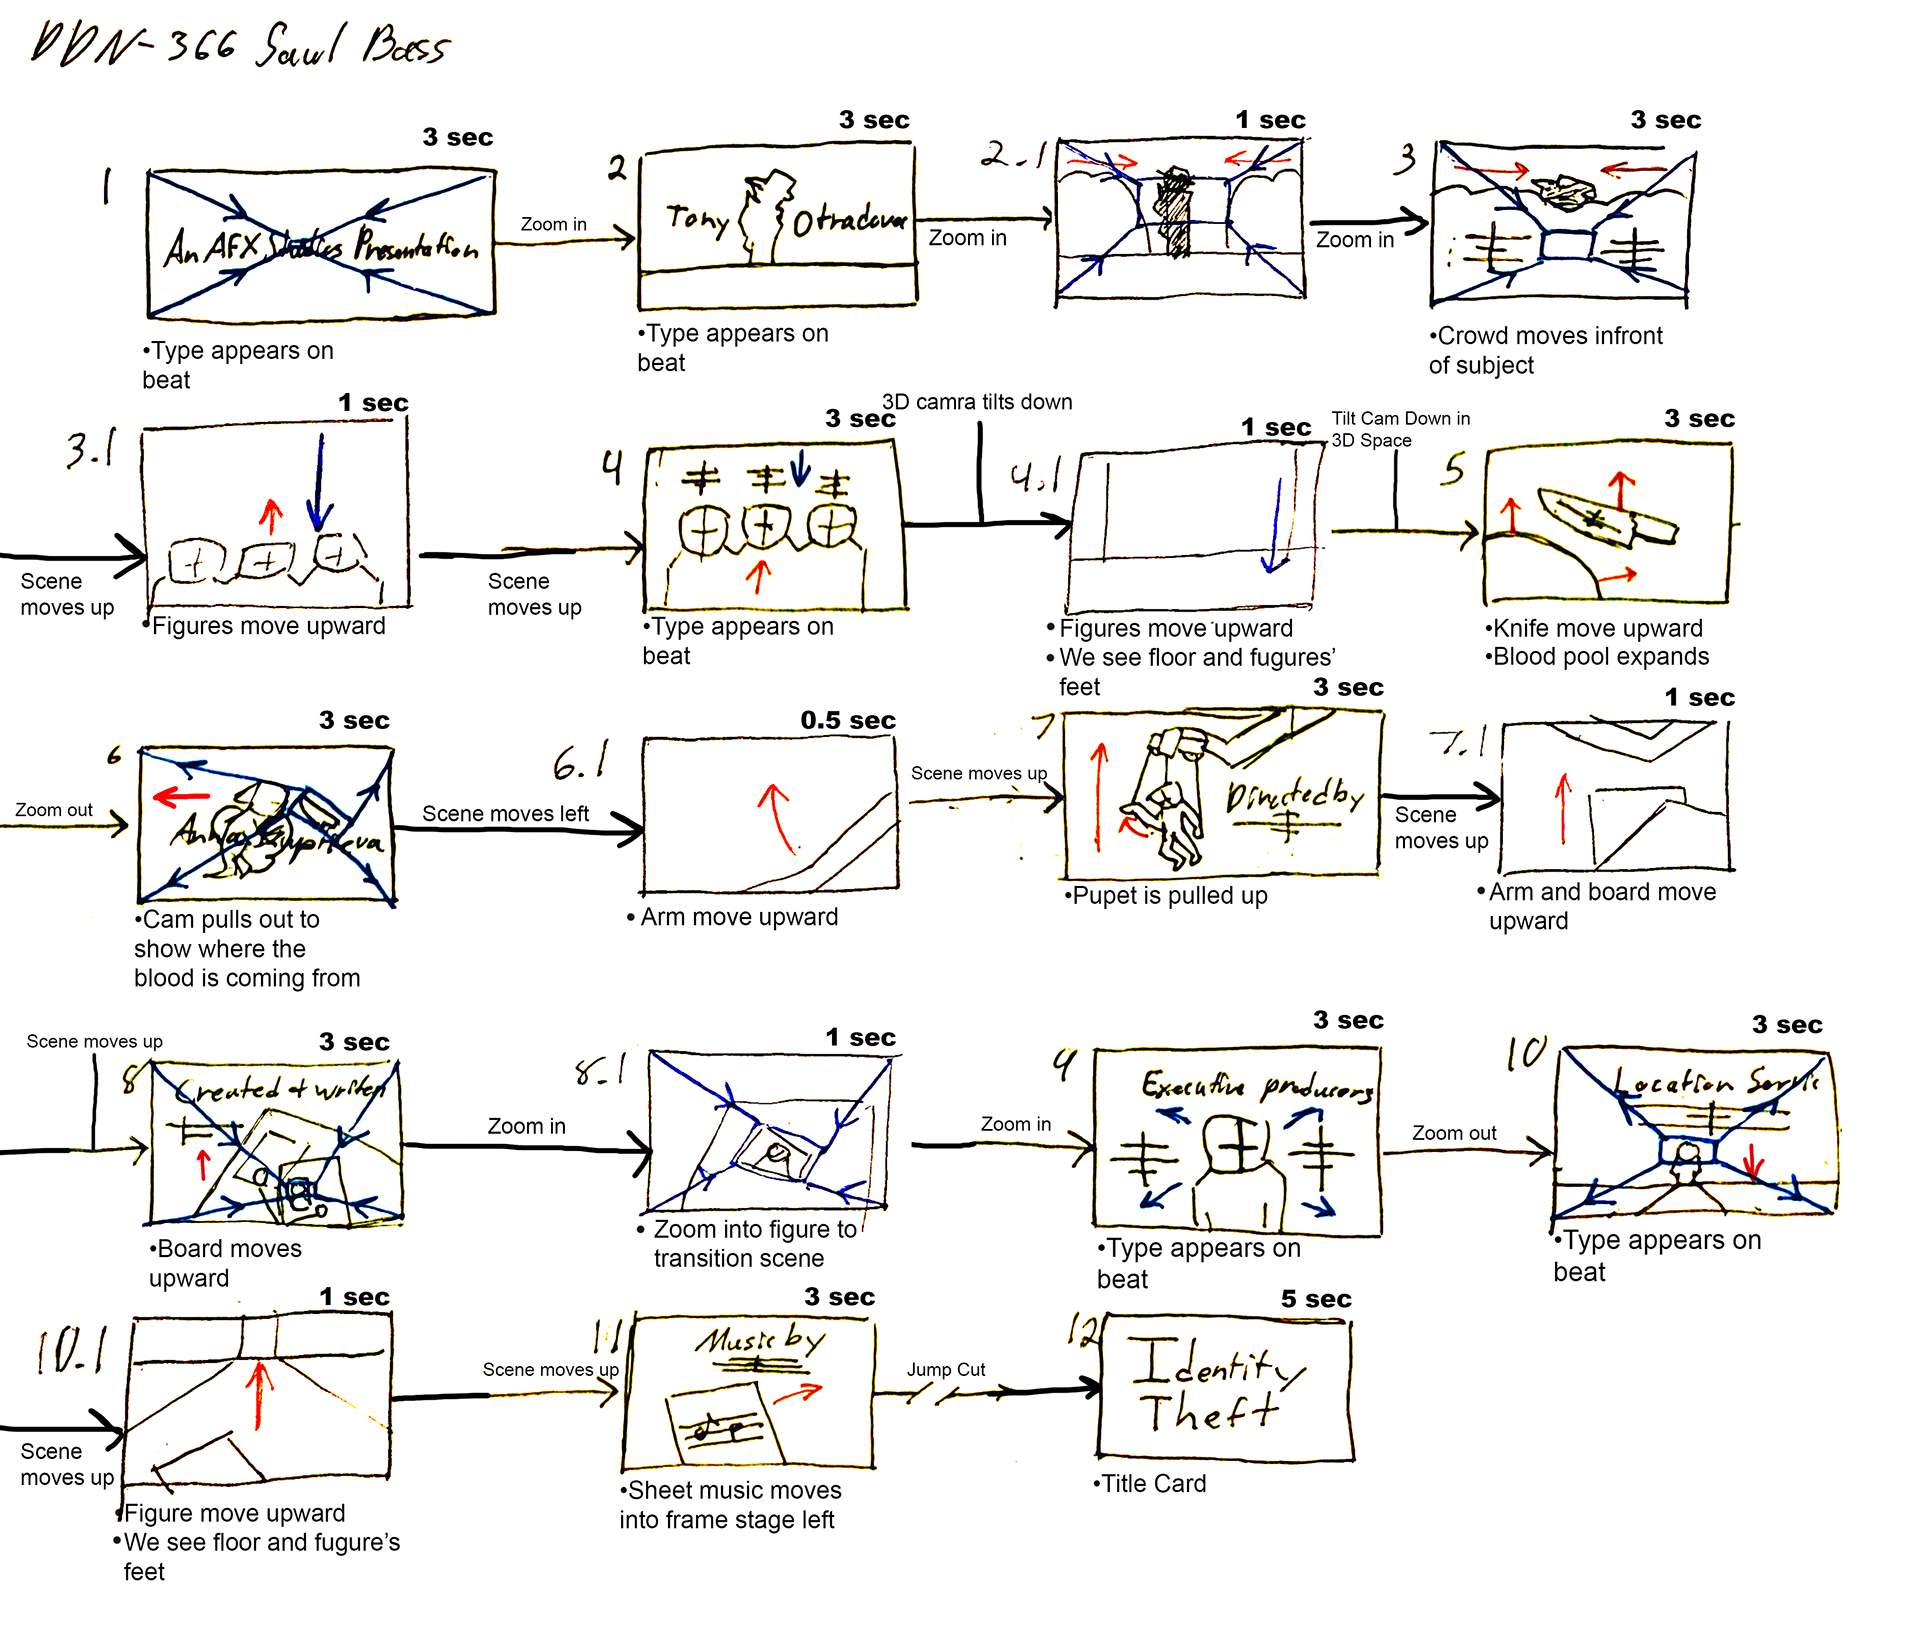 DDN-366 Saul Bass
3 sec
3 sec
1 sec
3 sec
1
2
2.1
3
An AFX Studios Presentation
Zoom in
Tony Otradovec
Zoom in
Zoom in
•Type appears on
beat
•Type appears on
beat
•Crowd moves infront
of subject
1 sec
3 sec
3D camra tilts down
1 sec
Tilt Cam Down in
3D Space
3 sec
3.1
4
4.1
5
Scene
moves up
Scene
moves up
•Figures move upward
•Type appears on
beat
•Figures move upward
•We see floor and fugures'
feet
•Knife move upward
•Blood pool expands
3 sec
0.5 sec
3 sec
1 sec
6
6.1
7
7.1
Zoom out
Scene moves left
Scene moves up
Directed by
Scene
moves up
•Cam pulls out to
show where the
blood is coming from
•Arm move upward
•Pupet is pulled up
•Arm and board move
upward
Scene moves up
3 sec
1 sec
3 sec
3 sec
8
8.1
9
10
Created & written
Zoom in
Zoom in
Executive producers
Zoom out
Location Servic
•Board moves
upward
•Zoom into figure to
transition scene
•Type appears on
beat
•Type appears on
beat
1 sec
3 sec
5 sec
10.1
11
12
Scene
moves up
Scene moves up
Music by
Jump Cut
Identity
Theft
•Figure move upward
•We see floor and fugure's
feet
•Sheet music moves
into frame stage left
•Title Card